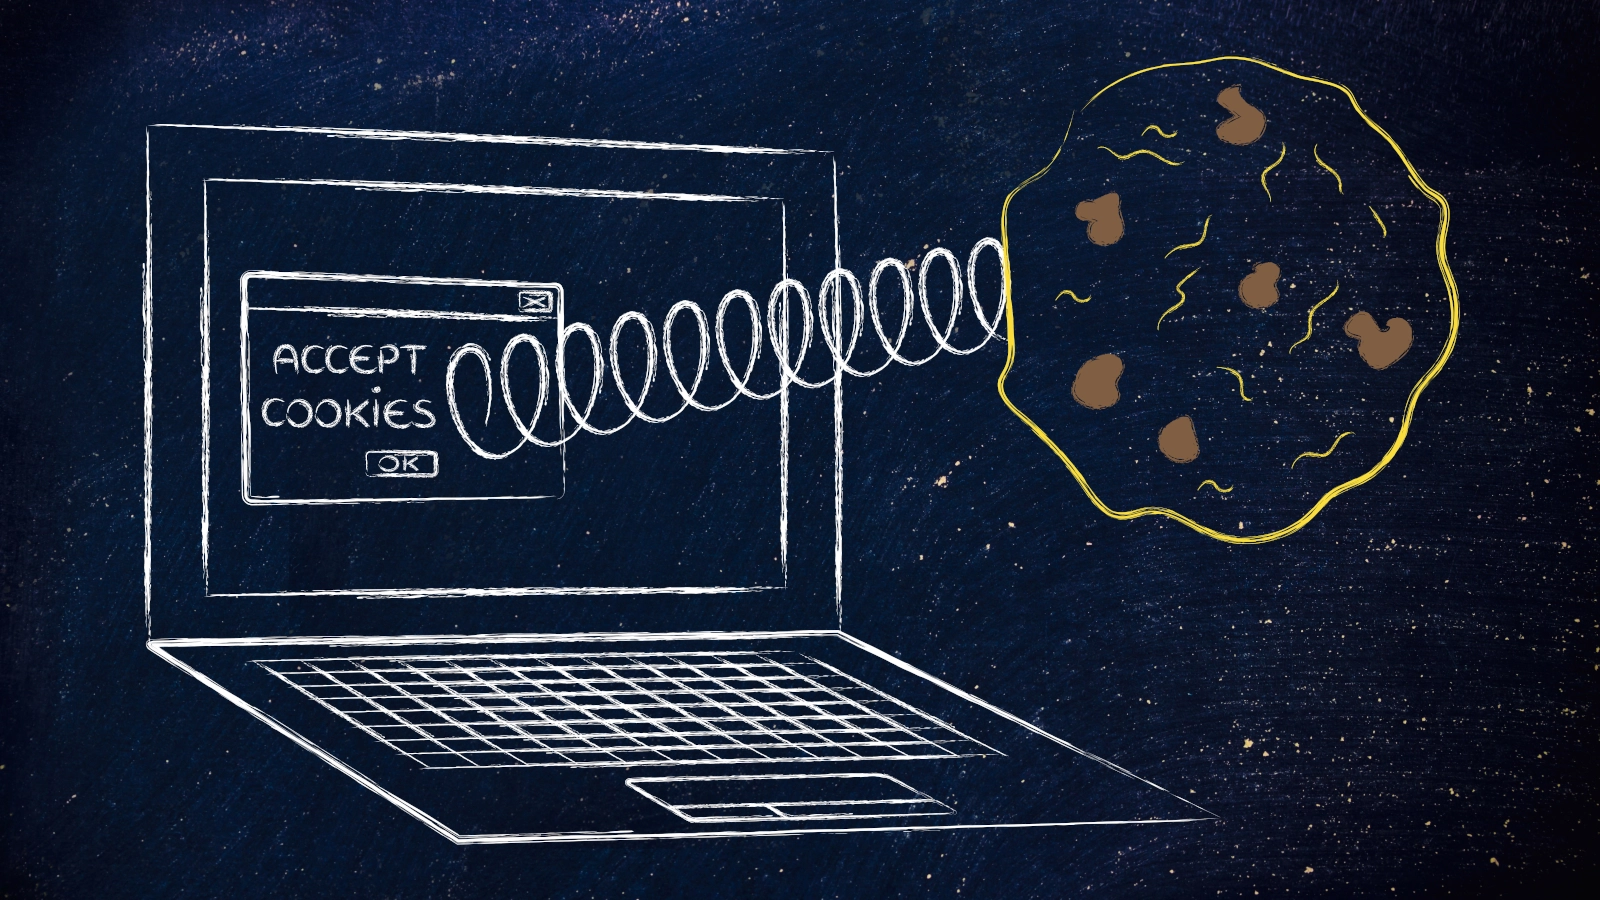 ACCEPT
COOKiES
OK